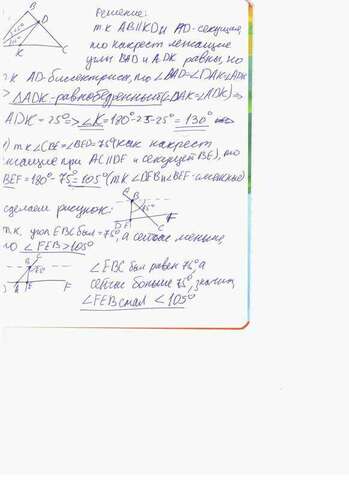 Решение:
т.к AB||KD и AD-секущая,
то накрест лежащие
углы BAD и ADK равны, но
к AD-биссектриса, то ∠BAD=∠DAK=∠ADK
> ΔADK-равнобедренный (∠DAK=∠ADK)=>
ADK=25°=> ∠K=180°-25-25°=130°
) т.к ∠CBE=∠BED=75° (как накрест
лежащие при AC||DF и секущей BE), то
BEF=180°-75=105° (т.к ∠DEB и ∠BEF-смежные)
сделаем рисунок:
т.к. угол EBC был =75°, а сейчас меньше,
то ∠FEB>105°
∠EBC был равен 75°, а
сейчас больше 75°, значит,
∠FEB стал <105°
B
D
25°
K
C
B
C
75°
D
E
F
B
C
E
F